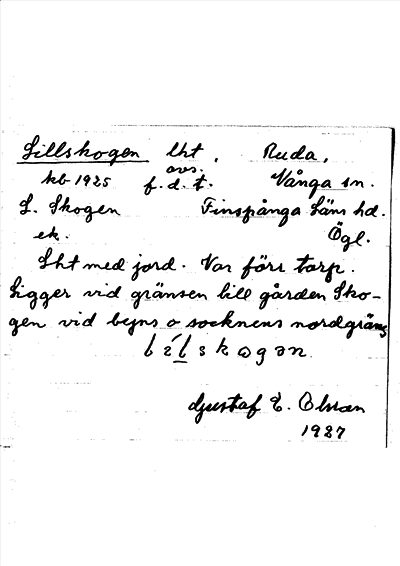 Lillskogen lht, Ruda,
avs.
kb 1925 f.d.t. Vånga sn.
L. Skogen Finspånga läns hd.
ek. Ögl.
Lht med jord. Var förr torp.
Ligger vid gränsen till gården Sko-
gen vid byns o socknens nordgräns
Gustaf E. Olsson
1927